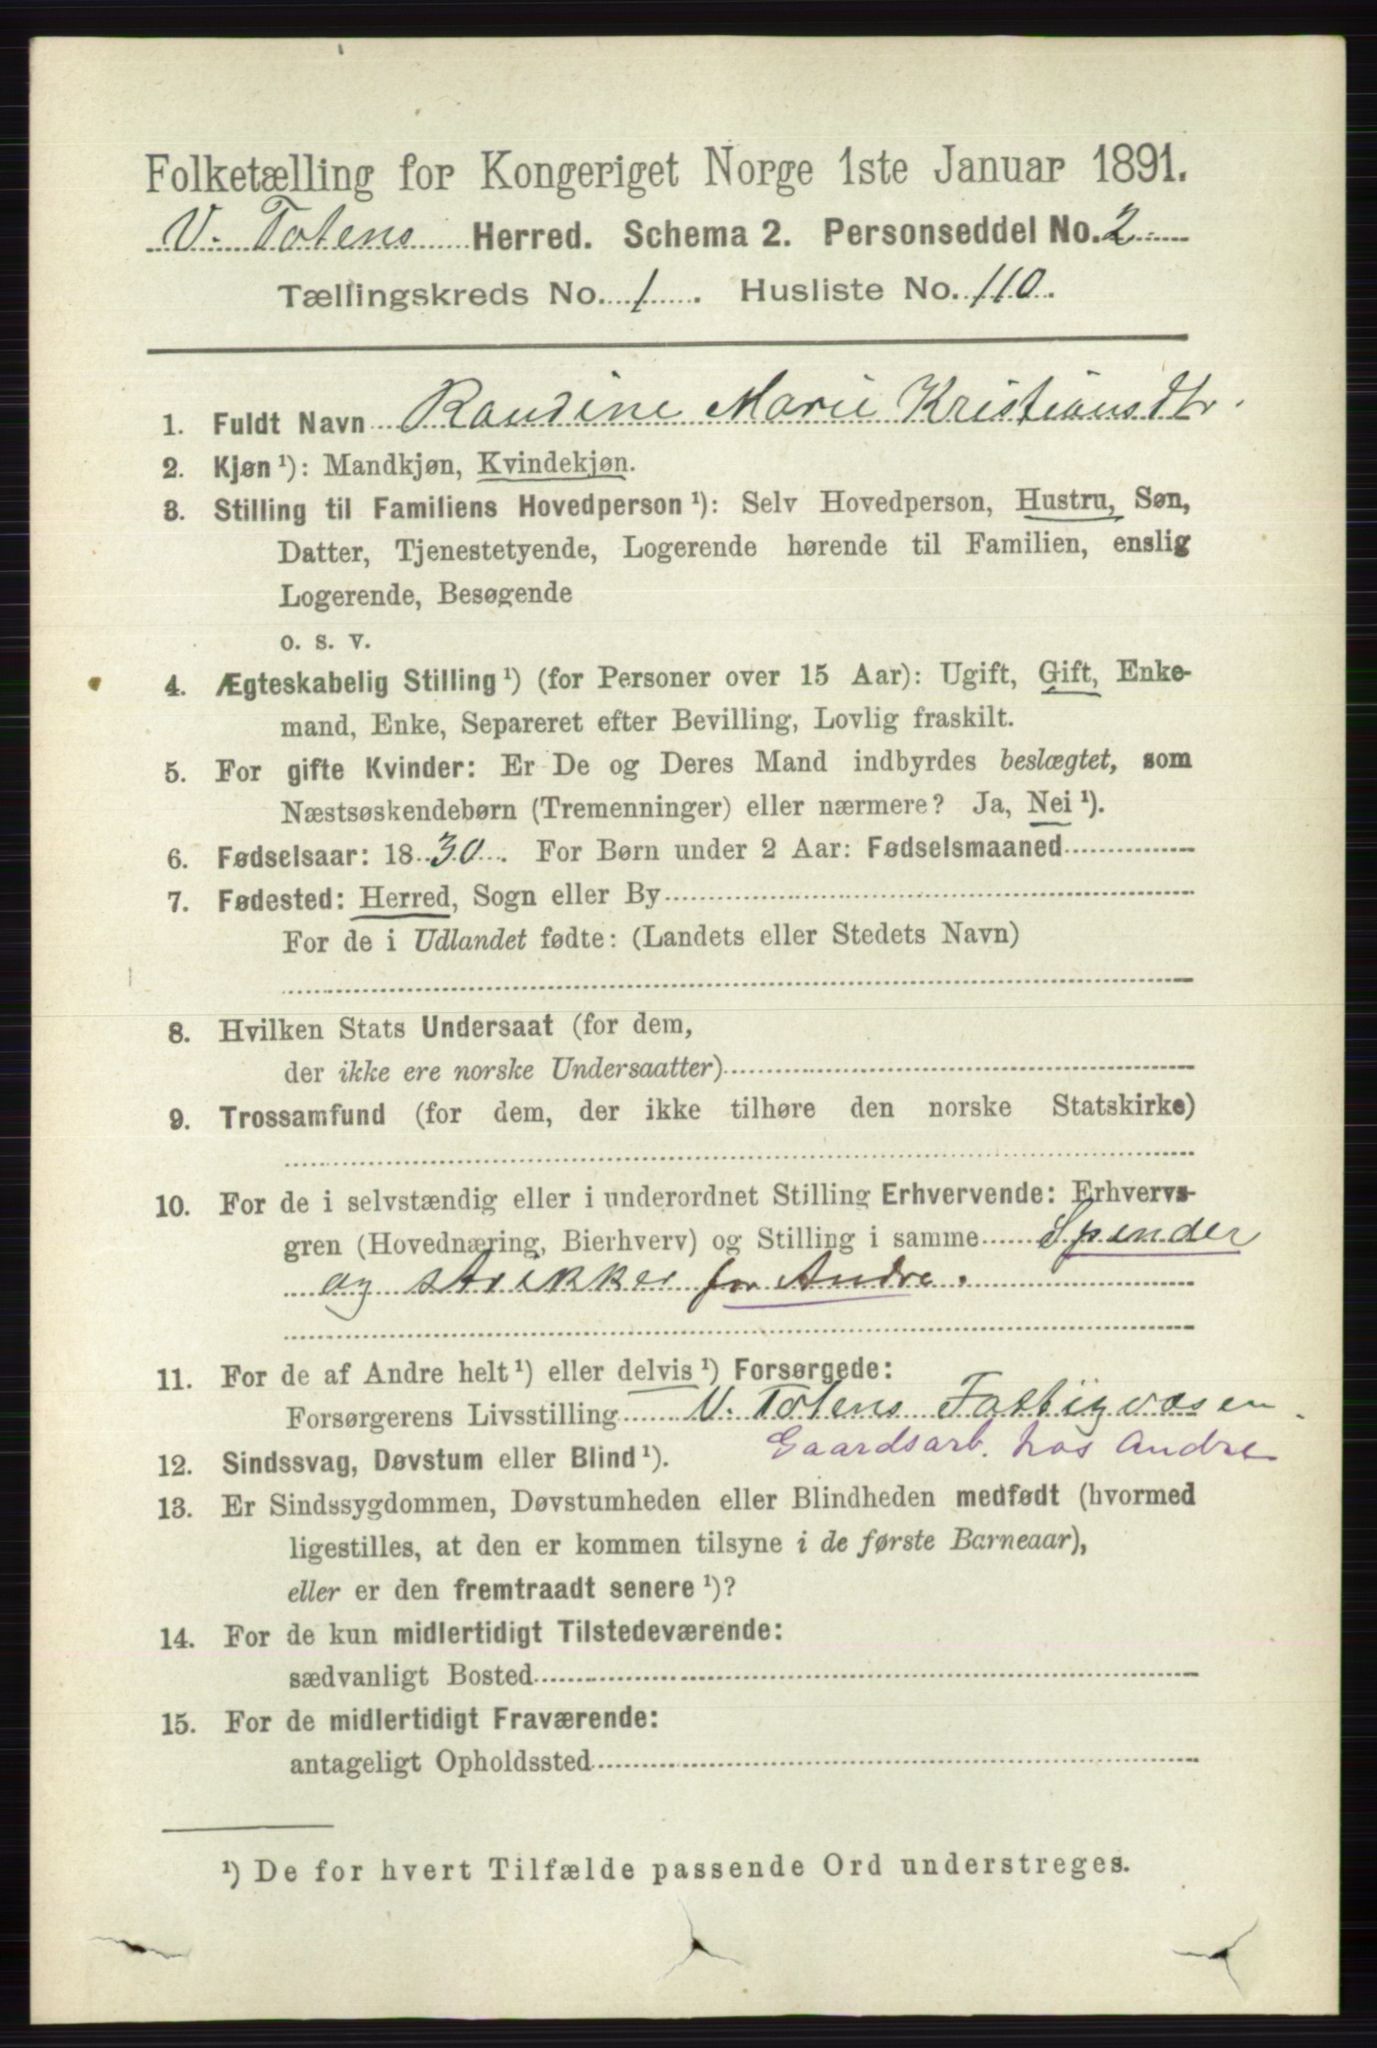 Folketælling for Kongeriget Norge 1ste Januar 1891.
V. Totens Herred. Schema 2. Personseddel No. 2
Tællingskreds No. 1. Husliste No. 110.
1. Fuldt Navn Randine Marie Kristiansdtr.
2. Kjøn ¹): Mandkjøn, Kvindekjøn.
3. Stilling til Familiens Hovedperson ¹): Selv Hovedperson, Hustru, Søn,
Datter, Tjenestetyende, Logerende hørende til Familien, enslig
Logerende, Besøgende
o. s. v.
4. Ægteskabelig Stilling ¹) (for Personer over 15 Aar): Ugift, Gift, Enke-
mand, Enke, Separeret efter Bevilling, Lovlig fraskilt.
5. For gifte Kvinder: Er De og Deres Mand indbyrdes beslægtet, som
Næstsøskendebørn (Tremenninger) eller nærmere? Ja, Nei ¹).
6. Fødselsaar: 1830. For Børn under 2 Aar: Fødselsmaaned
7. Fødested: Herred, Sogn eller By
For de i Udlandet fødte: (Landets eller Stedets Navn)
8. Hvilken Stats Undersaat (for dem,
der ikke ere norske Undersaatter)
9. Trossamfund (for dem, der ikke tilhøre den norske Statskirke)
10. For de i selvstændig eller i underordnet Stilling Erhvervende: Erhvervs-
gren (Hovednæring, Bierhverv) og Stilling i samme Spinder
og strikker for Andre.
11. For de af Andre helt ¹) eller delvis ¹) Forsørgede:
Forsørgerens Livsstilling V. Totens Fattigvæsen
Gaardsarb. hos Andre
12. Sindssvag, Døvstum eller Blind ¹).
13. Er Sindssygdommen, Døvstumheden eller Blindheden medfødt (hvormed
ligestilles, at den er kommen tilsyne i de første Barneaar),
eller er den fremtraadt senere ¹)?
14. For de kun midlertidigt Tilstedeværende:
sædvanligt Bosted
15. For de midlertidigt Fraværende:
antageligt Opholdssted
¹) De for hvert Tilfælde passende Ord understreges.